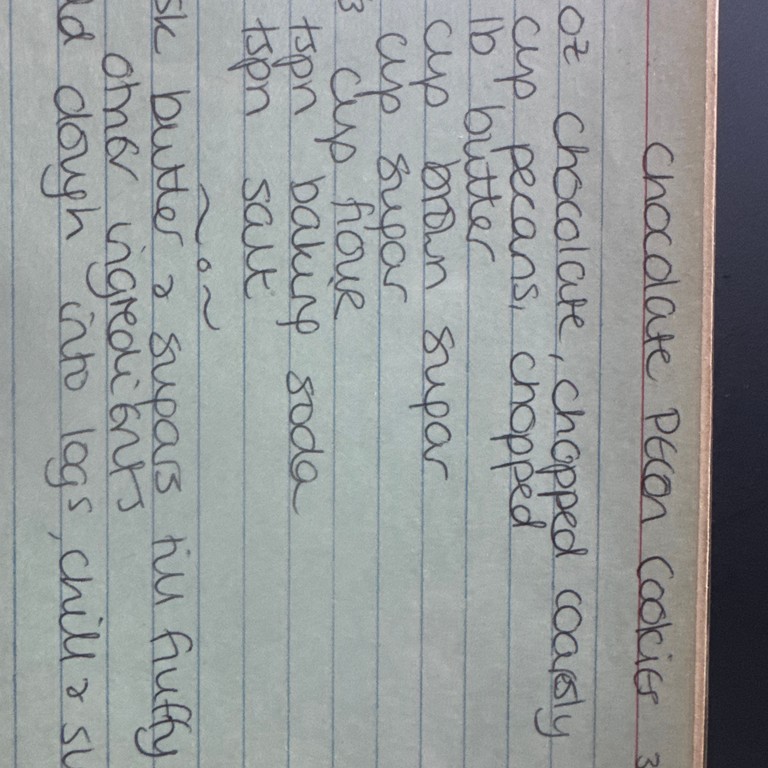 Chocolate Pecon Cookies 3
oz chocolate, chopped coarsly
cup pecans, chopped
lb butter
cup brown sugar
cup sugar
3 cup flour
tspn baking soda
tspn salt
~ o ~
sk butter & sugars till fluffy
other ingredients
ld dough into logs, chill & sl